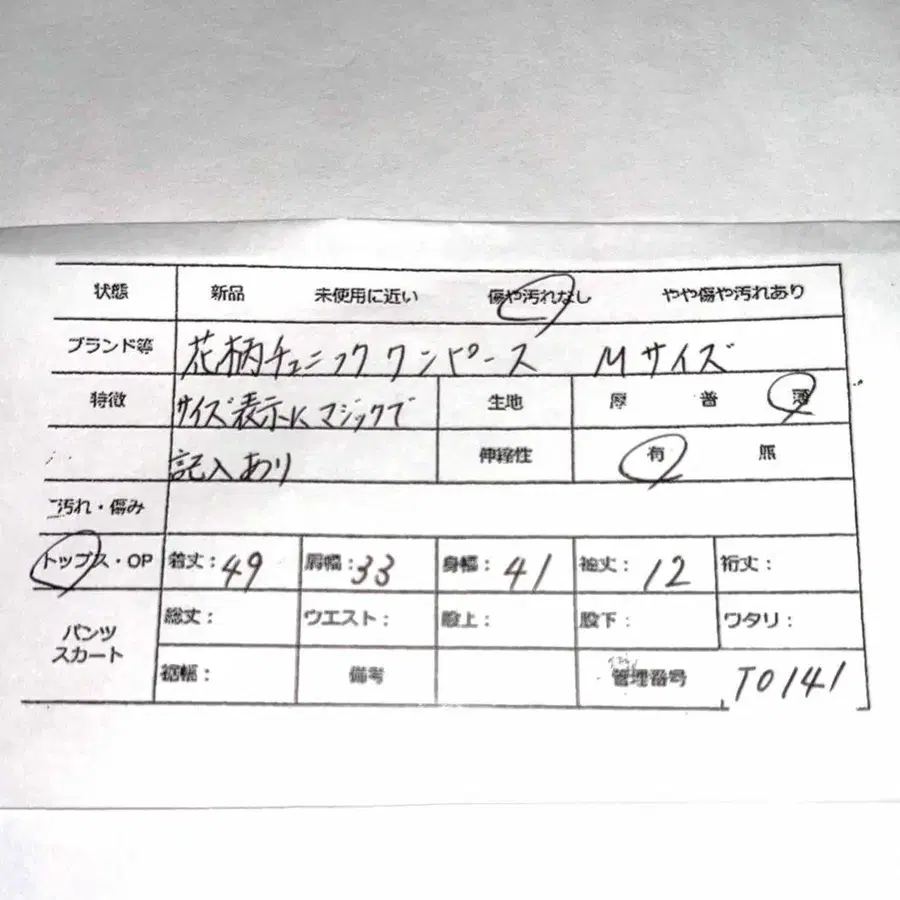 状態 新品 未使用に近い 傷や汚れなし やや傷や汚れあり
ブランド等 花柄チュニックワンピース Mサイズ
特徴 サイズ表示にマジックで 生地 厚 普 薄
記入あり 伸縮性 有 無
汚れ・傷み
トップス・OP 着丈：49 肩幅：33 身幅：41 袖丈：12 裄丈：
パンツ
スカート
総丈： ウエスト： 股上： 股下： ワタリ：
裾幅： 備考 管理番号 T0141